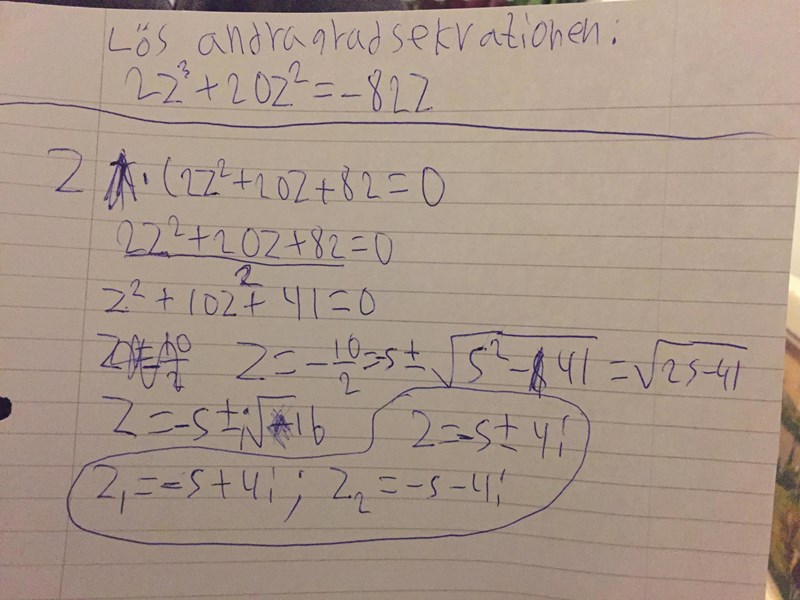 Lös andragradsekvationen:
2z³+20z²=-82z
z · (2z²+20z+82=0
2z²+20z+82=0
z²+10z+41=0
z=-10/2=-5±√5²-41 =√25-41
z=-5±i√16 z=-5±4i
z₁=-5+4i; z₂=-5-4i